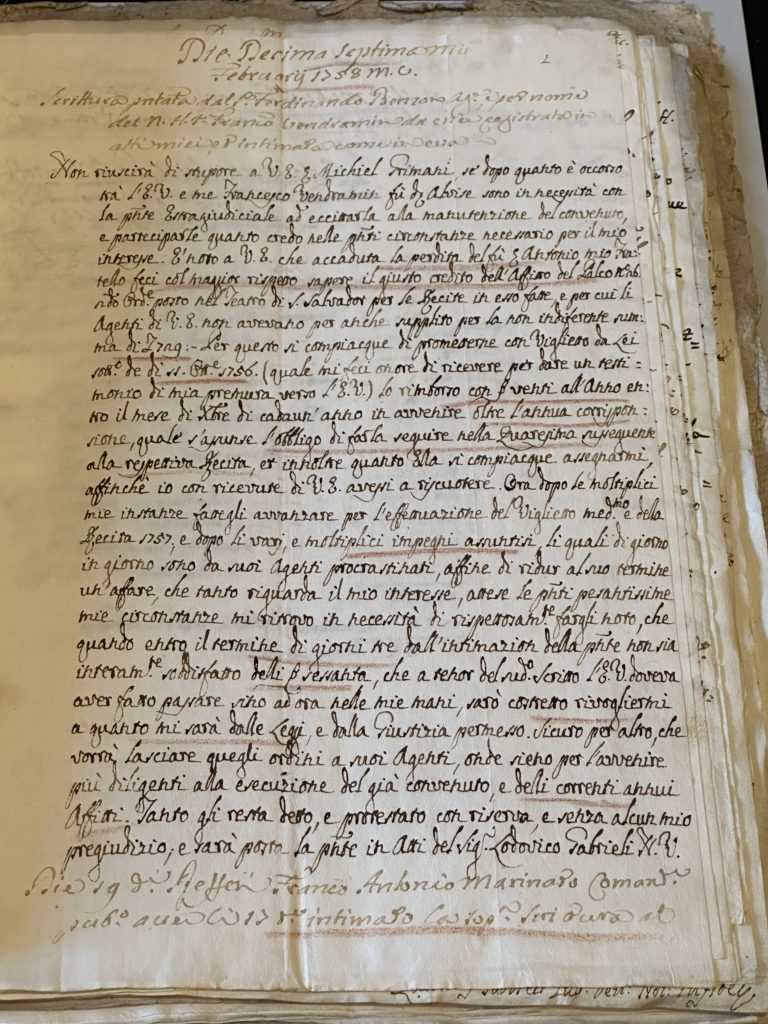 Die Decima Septima
Februarij 1758 M. V.
Scrittura dal Sr. Ferdinando Benzon per nome
del N. H. Franco Vendramin da esser registrata in
atti miei, come in essa
Non riuscirà di stupore a V. E. Michiel Grimani, se dopo quanto è occorso
trà l'E. V. e me Francesco Vendramin fù Alvise sono in necesità con
la pnte Estragiudiciale ad eccitarla alla manutenzione del convenuto,
e parteciparle quanto credo nelle pnti circostanze necessario per il mio
interesse. È noto a V. E. che accaduta la perdita del fù Antonio mio Fra-
tello feci col maggior rispetto sapere il giusto credito dell'Affitto del Palco
Orde posto nel Teatro di S. Salvador per le Recite in esso fatte, e per cui li
Agenti di V. E. non avevano per anche supplito per la non indiferente sum-
ma di :- Per questo si compiacque di promettermi con Viglietto da Lei
sotto de di 1756. (quale mi feci onore di ricevere per dare un testi-
monio di mia premura verso l'E. V.) lo rimborso con venti all'Anno en-
tro il mese di Xbre di cadaun' anno in avvenire oltre l'annua corrispon-
sione, quale s'asunse l'obbligo di farla seguire nella Quaresima susequente
alla respettiva Recita, et inholtre quanto Ella si compiacque assegnarmi,
affinchè io con ricevute di V. E. avessi a riscuotere. Ora dopo le moltiplici
mie instanze fattegli avvanzare per l'effettuazione del Viglietto medmo, e della
Recita 1757, e dopo li varj, e moltiplici impegni assuntisi, li quali di giorno
in giorno sono da suoi Agenti procrastinati, affine di ridur al suo termine
un'affare, che tanto riguarda il mio interesse, attese le pnti pesantissime
mie circostanze mi ritrovo in necesità di rispettosamte fargli noto, che
quando entro il termine di giorni tre dall'intimazion della pnte non sia
interamte soddisfatto delli sessanta, che a tenor del sudo Scritto l'E. V. doveva
aver fatto passare sino ad'ora nelle mie mani, sarò costretto rivogliermi
a quanto mi sarà dalle Leggi, e dalla Giustizia permesso. Sicuro per altro, che
vorrà lasciare quegli ordini a suoi Agenti, onde sieno per l'avvenire
più diligenti alla esecuzione del già convenuto, e delli correnti annui
Affitti. Tanto gli resta detto, e protestato con riserva, e senza alcun mio
pregiudizio, e sarà posta la pnte in Atti del Sigr Lodovico Gabrieli N. V.
Die 19 do Franco Antonio Marinaro Comanr
pubo li 17 intimato la sopa scritura al